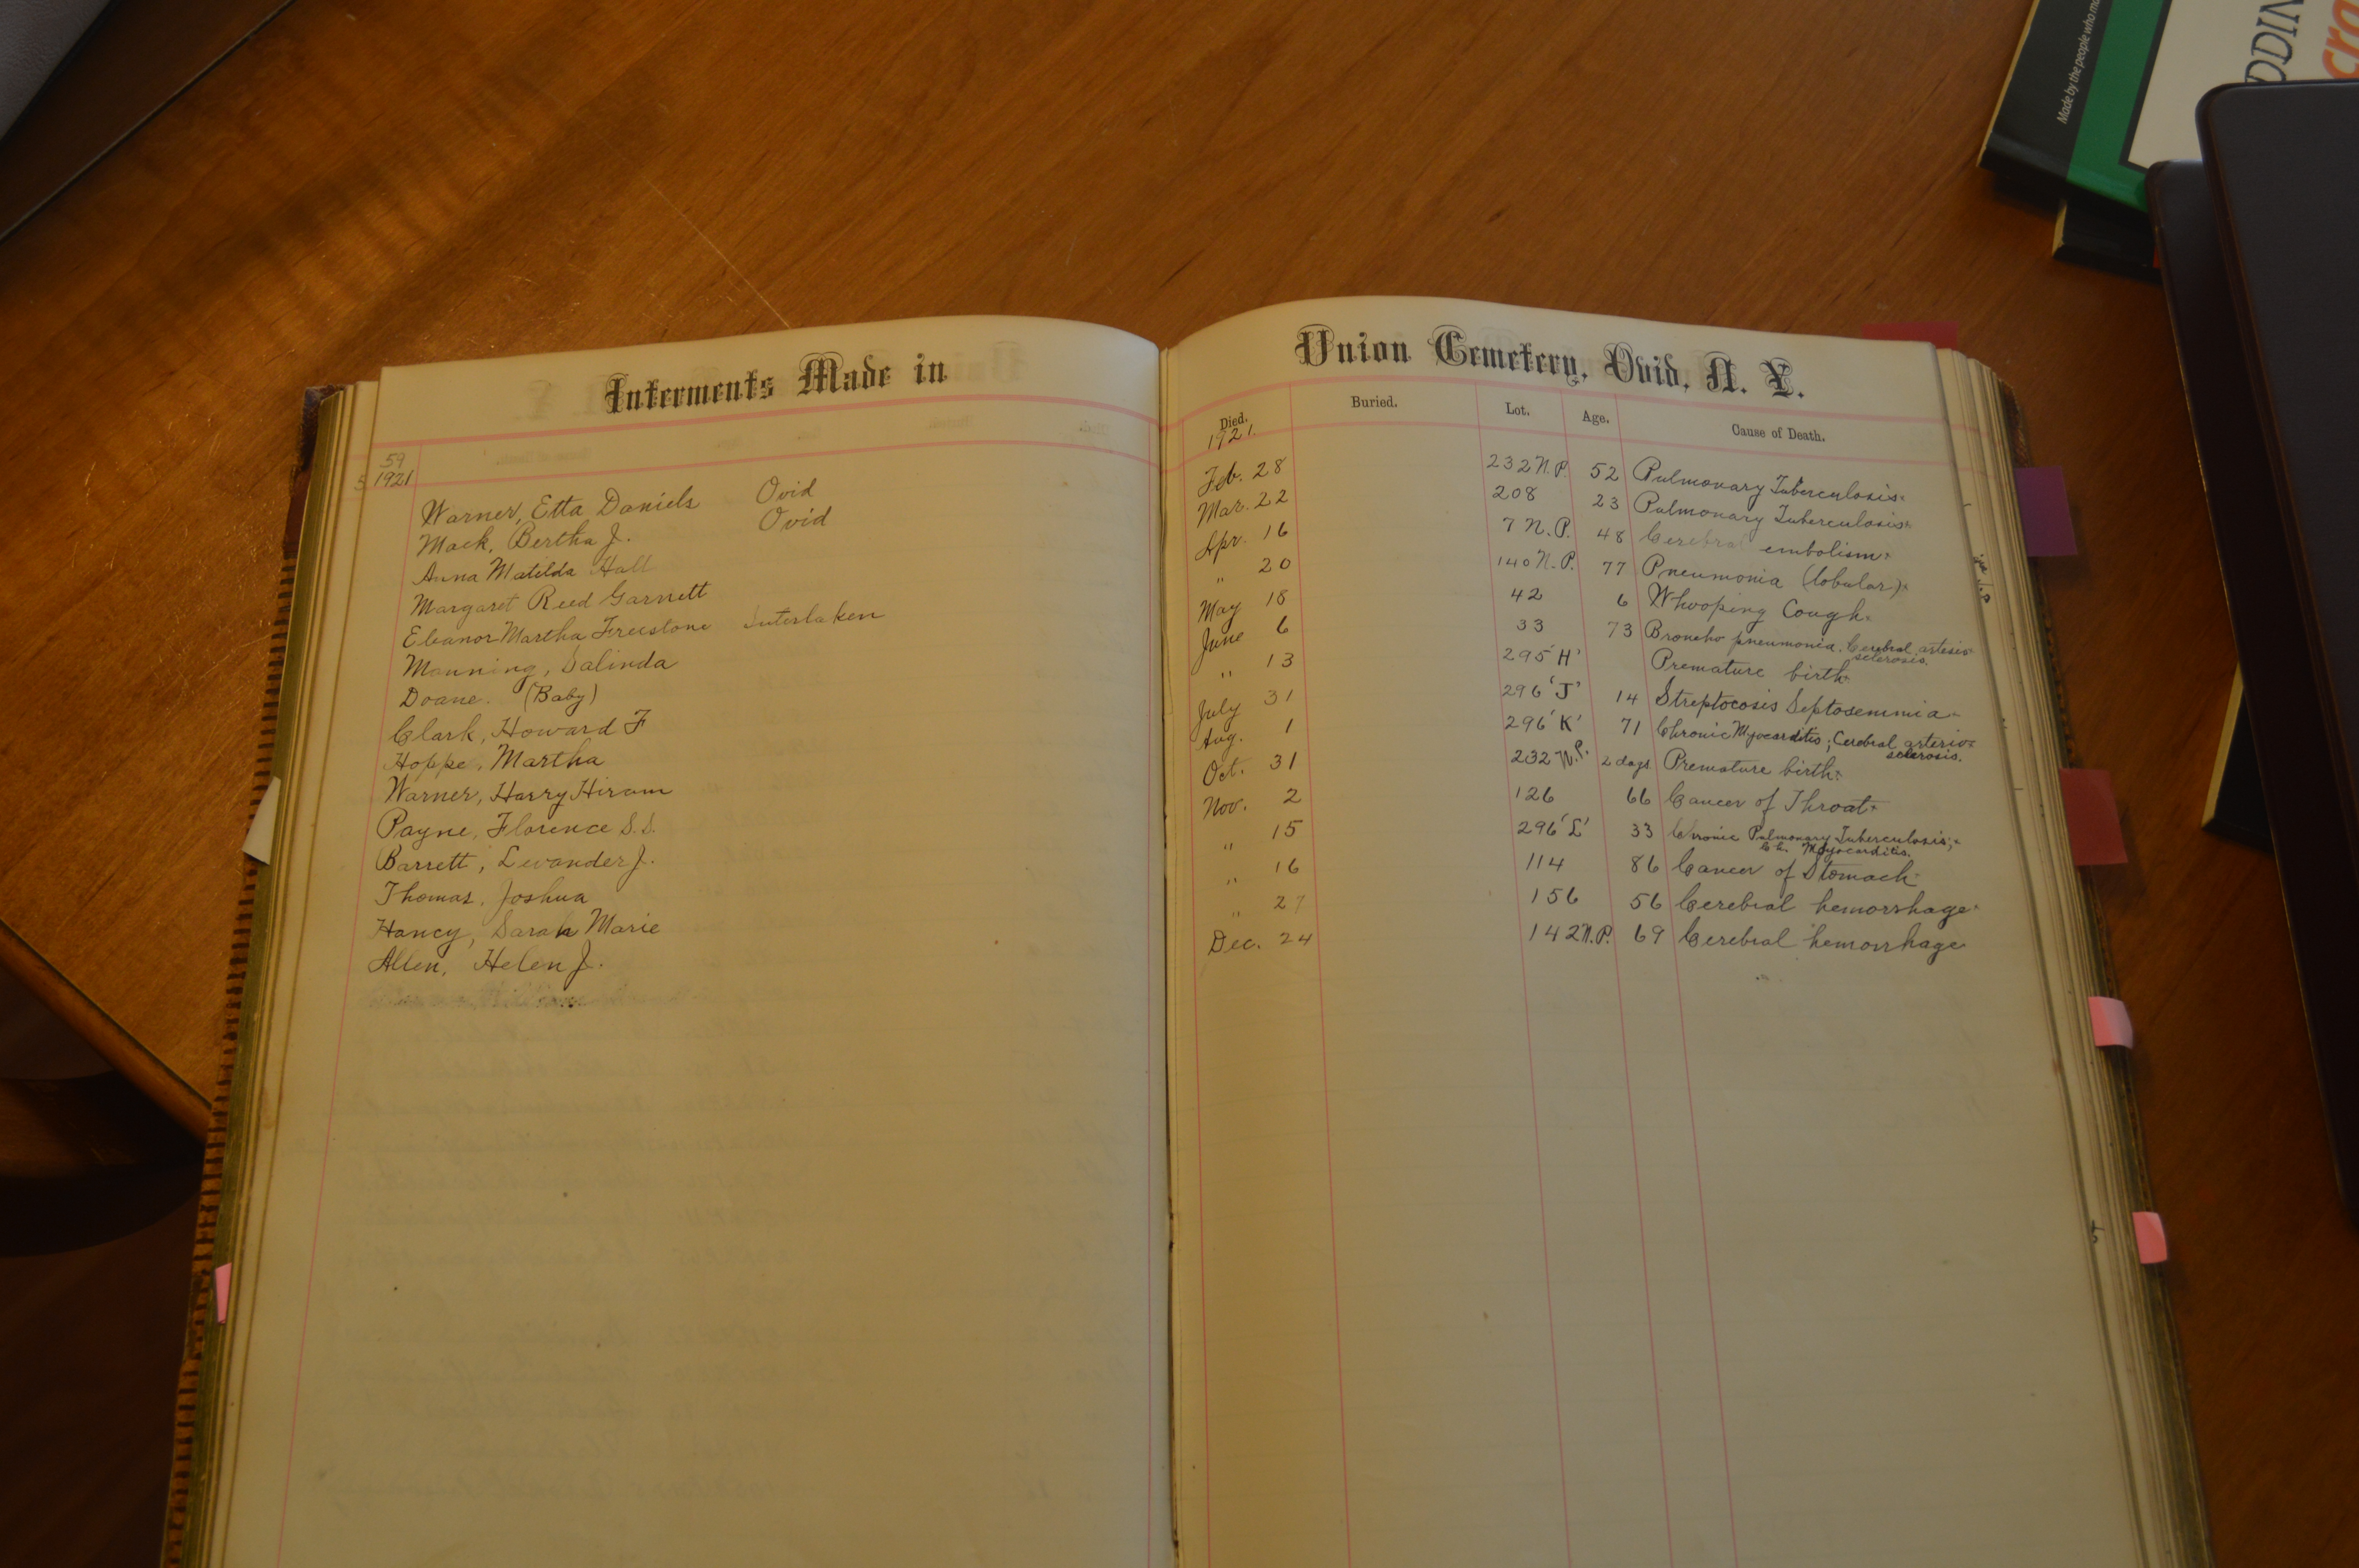 Interments Made in
59
1921
Warner, Etta Daniels Ovid
Mack, Bertha J. Ovid
Anna Matilda Hall
Margaret Reed Garnett
Eleanor Martha Freestone Interlaken
Manning, Salinda
Doane. (Baby)
Clark, Howard F
Hoppe, Martha
Warner, Harry Hiram
Payne, Florence S.S.
Barrett, Levander J.
Thomas, Joshua
Hancy, Sarah Marie
Allen, Helen J.
Union Cemetery, Ovid, N. Y.
Died. Buried. Lot. Age. Cause of Death.
1921.
Feb. 28 232 N.P. 52 Pulmonary Tuberculosis.
Mar. 22 208 23 Pulmonary Tuberculosis.
Apr. 16 7 N.P. 48 Cerebral embolism.
" 20 140 N.P. 77 Pneumonia (lobular).
May 18 42 6 Whooping Cough.
June 6 33 73 Broncho pneumonia. Cerebral arterio
sclerosis.
" 13 295 'H' Premature birth
July 31 296 'J' 14 Streptocosis Septosemmia
Aug. 1 296 'K' 71 Chronic Myocarditis; Cerebral arterio
sclerosis.
Oct. 31 232 N.P. 2 days Premature birth.
Nov. 2 126 66 Cancer of Throat
" 15 296 'L' 33 Chronic Pulmonary Tuberculosis;
Ch. Myocarditis.
" 16 114 86 Cancer of Stomach
" 27 156 56 Cerebral hemorrhage
Dec. 24 142 N.P. 69 Cerebral hemorrhage
Made by the people who
DDIN
cra